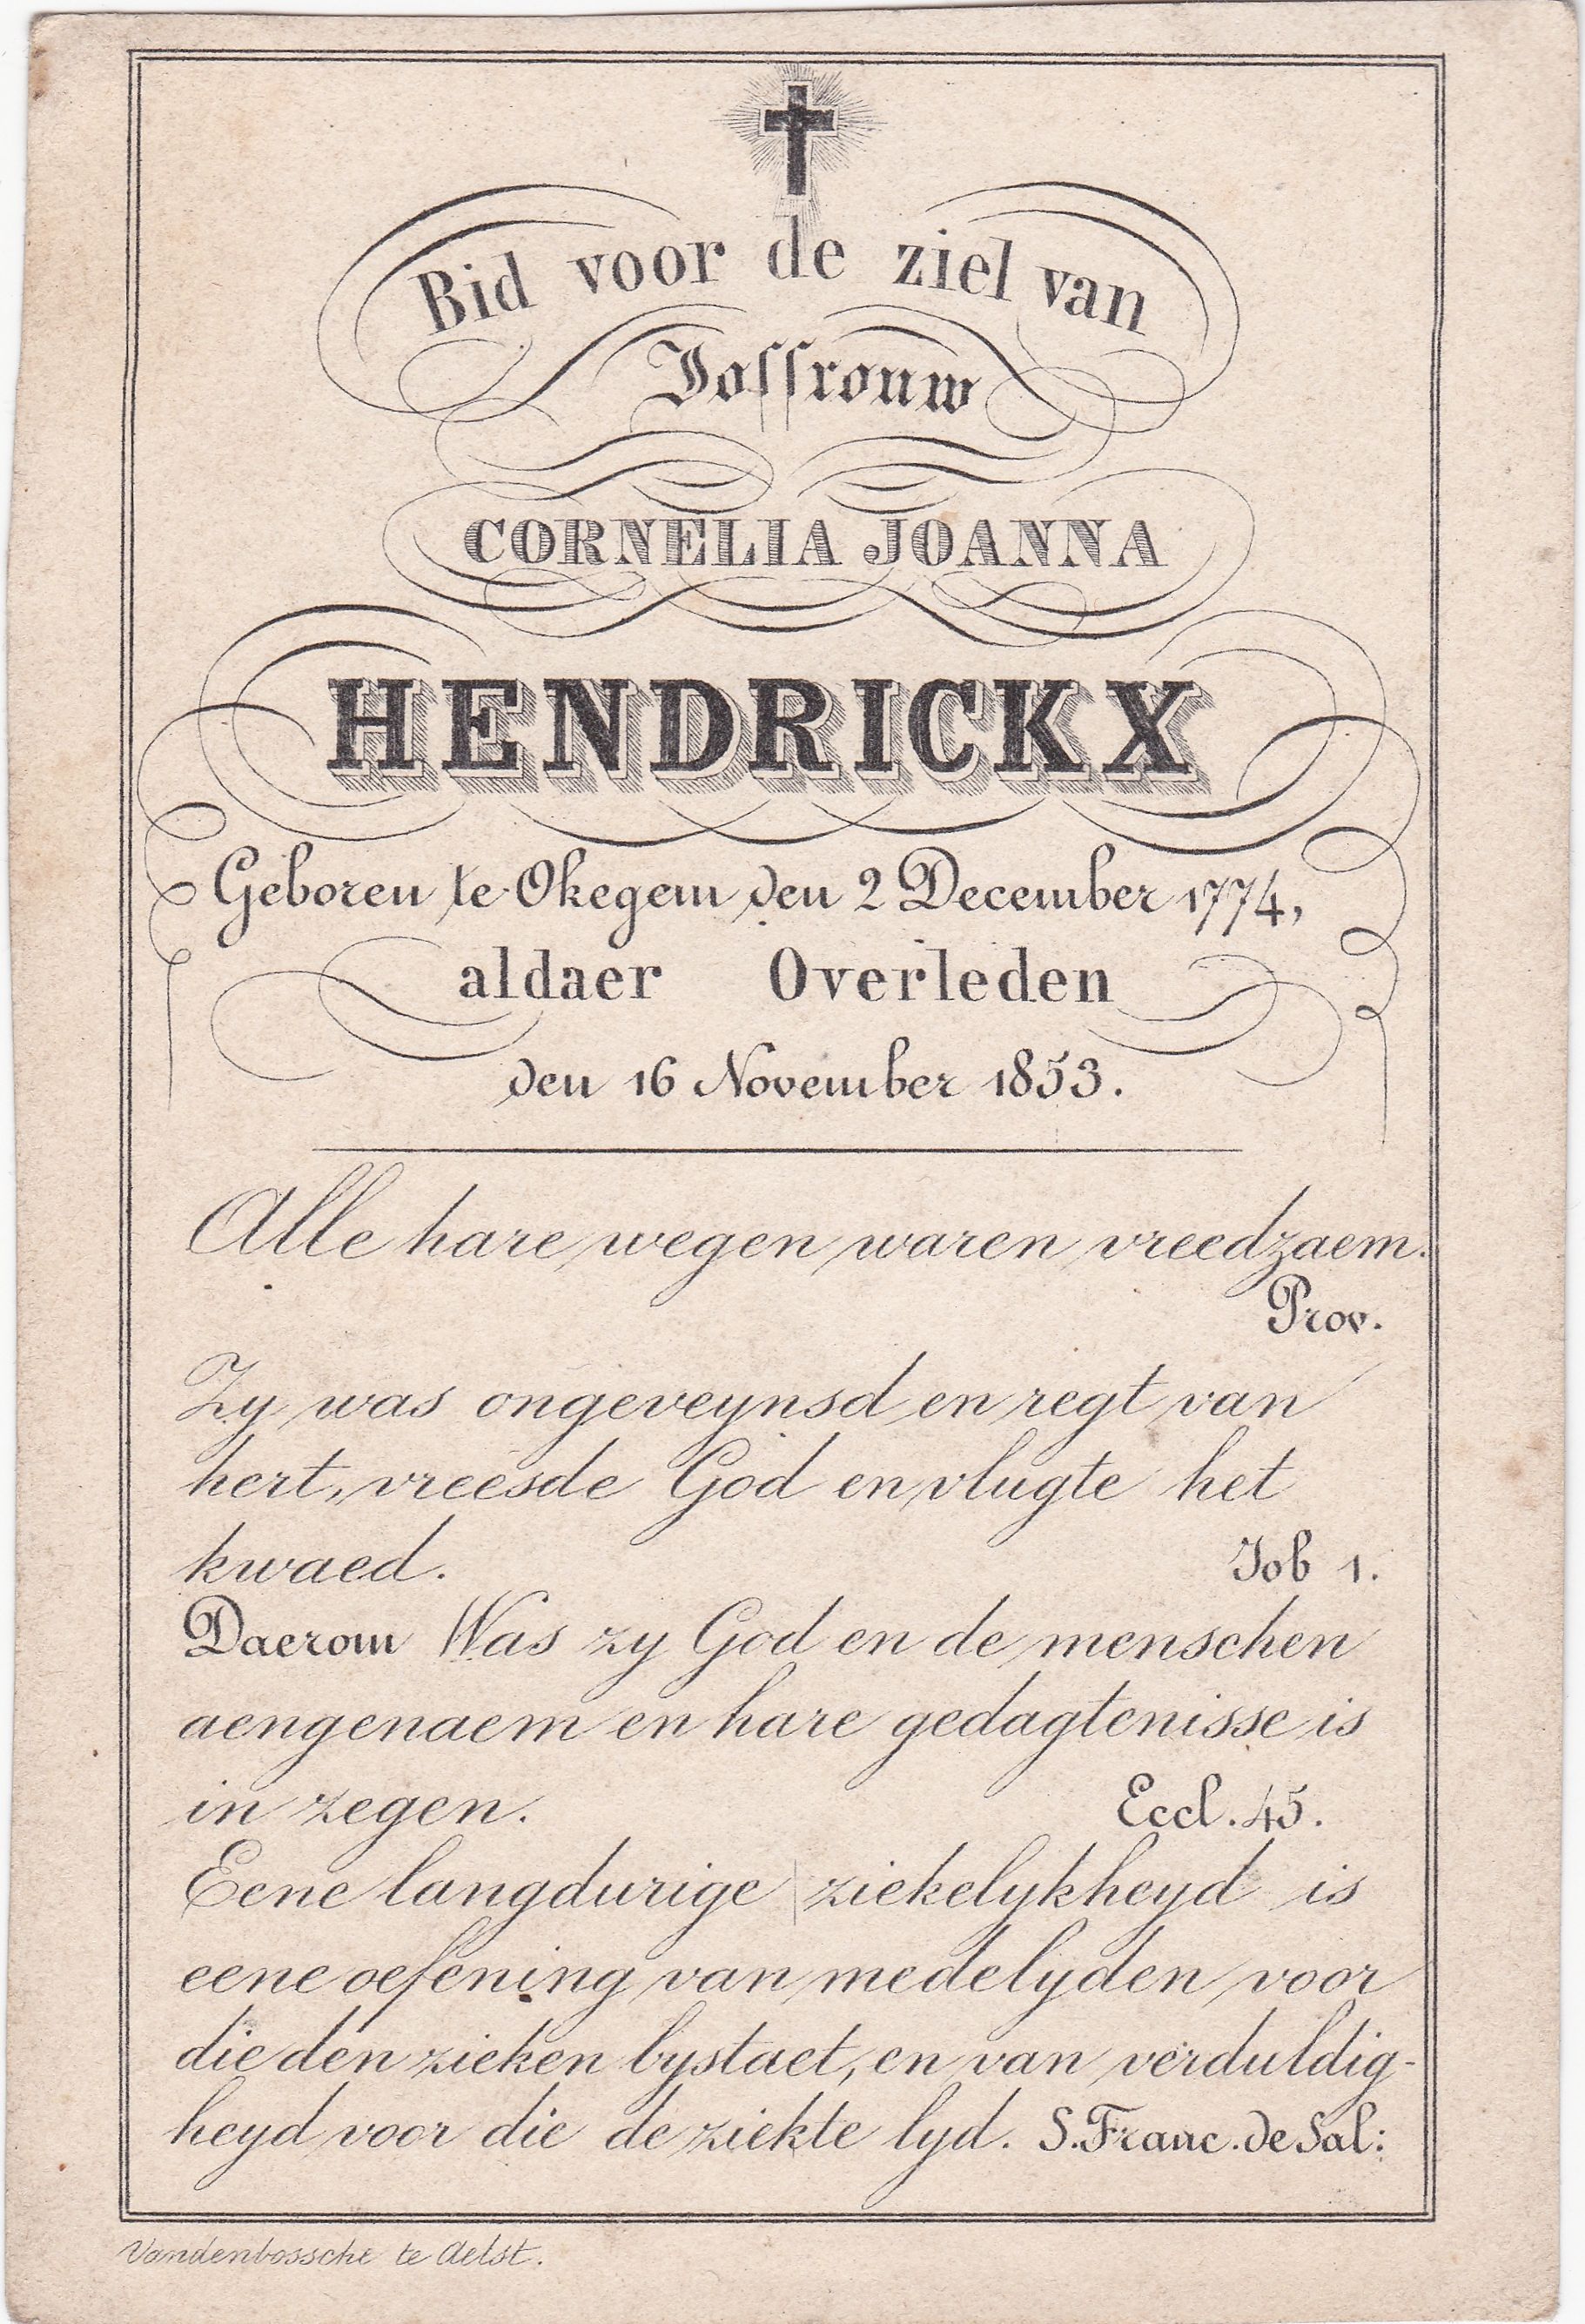 Bid voor de ziel van
Joffrouw
CORNELIA JOANNA
HENDRICKX
Geboren te Okegem den 2 December 1774,
aldaer Overleden
den 16 November 1853.
Alle hare wegen waren vreedzaem.
Prov.
Zy was ongeveynsd en regt van
hert, vreesde God en vlugte het
kwaed. Job 1.
Daerom Was zy God en de menschen
aengenaem en hare gedagtenisse is
in zegen. Eccl. 45.
Eene langdurige ziekelykheyd is
eene oefening van medelyden voor
die den zieken bystaet, en van verduldig-
heyd voor die de ziekte lyd. S. Franc. de Sal:
Vandenbossche te Aelst.